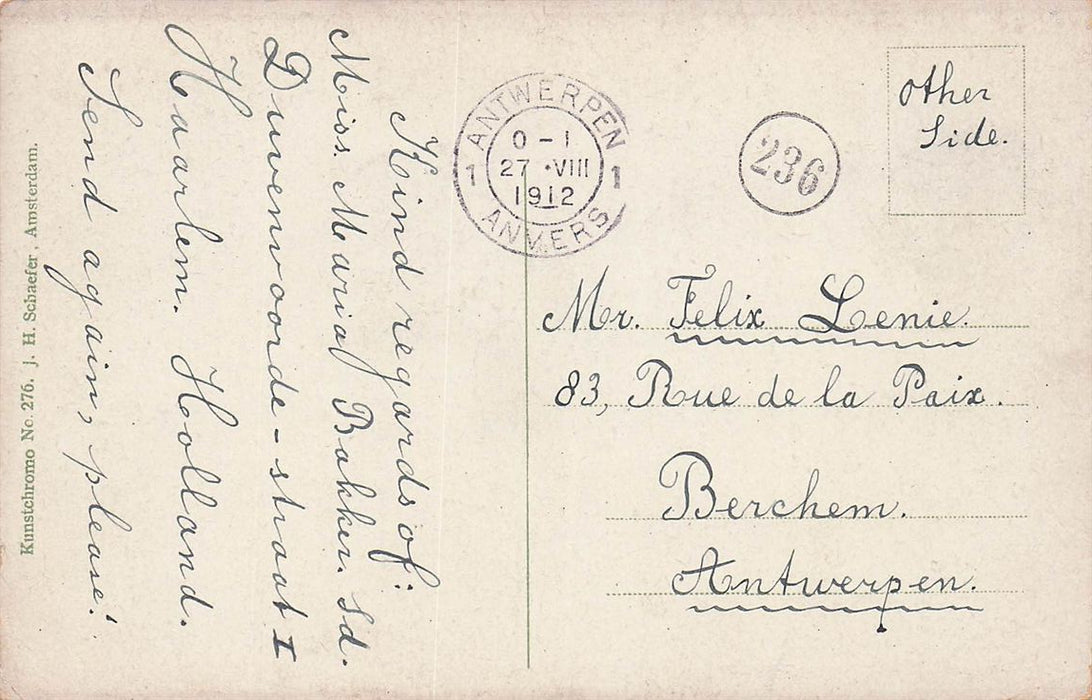 Kind regards of:
Miss. Maria Bakker. Sd.
Duvenvoorde-straat I
Haarlem. Holland.
Send again, please!
Kunstchromo No. 276. J. H. Schaefer, Amsterdam.
ANTWERPEN
0-1
1 27 · VIII 1
1912
ANVERS
236
Other
Side.
Mr. Felix Lenie.
83, Rue de la Paix.
Berchem.
Antwerpen.